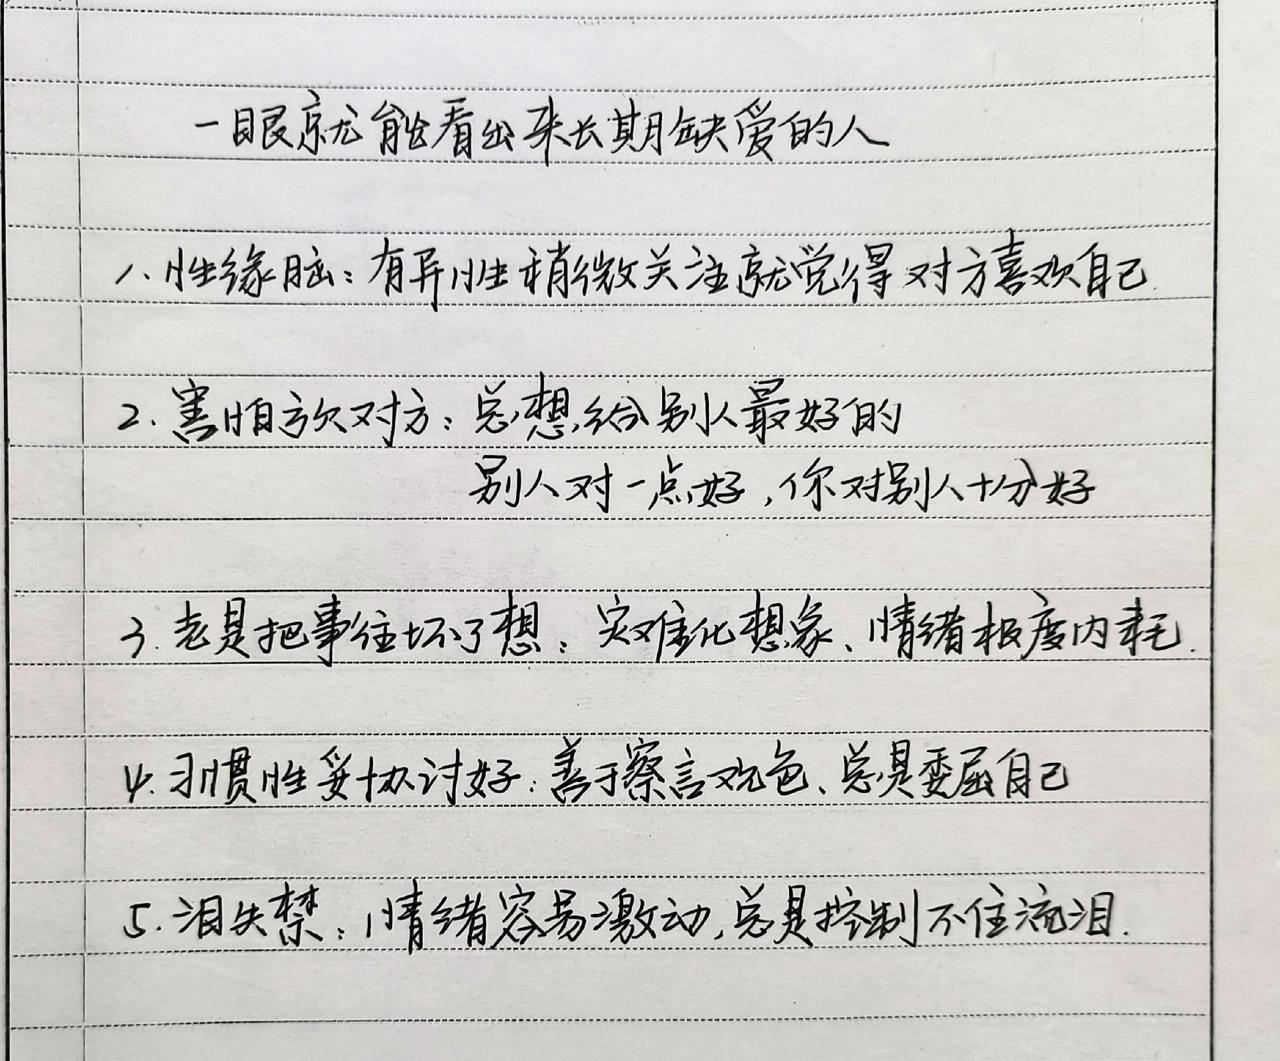 一眼就能看出来长期缺爱的人
1. 性缘脑：有异性稍微关注就觉得对方喜欢自己
2. 害怕亏欠对方：总想给别人最好的
别人对一点好，你对别人十分好
3. 老是把事往坏了想：灾难化想象、情绪极度内耗.
4. 习惯性妥协讨好：善于察言观色、总是委屈自己
5. 泪失禁：情绪容易激动,总是控制不住流泪.